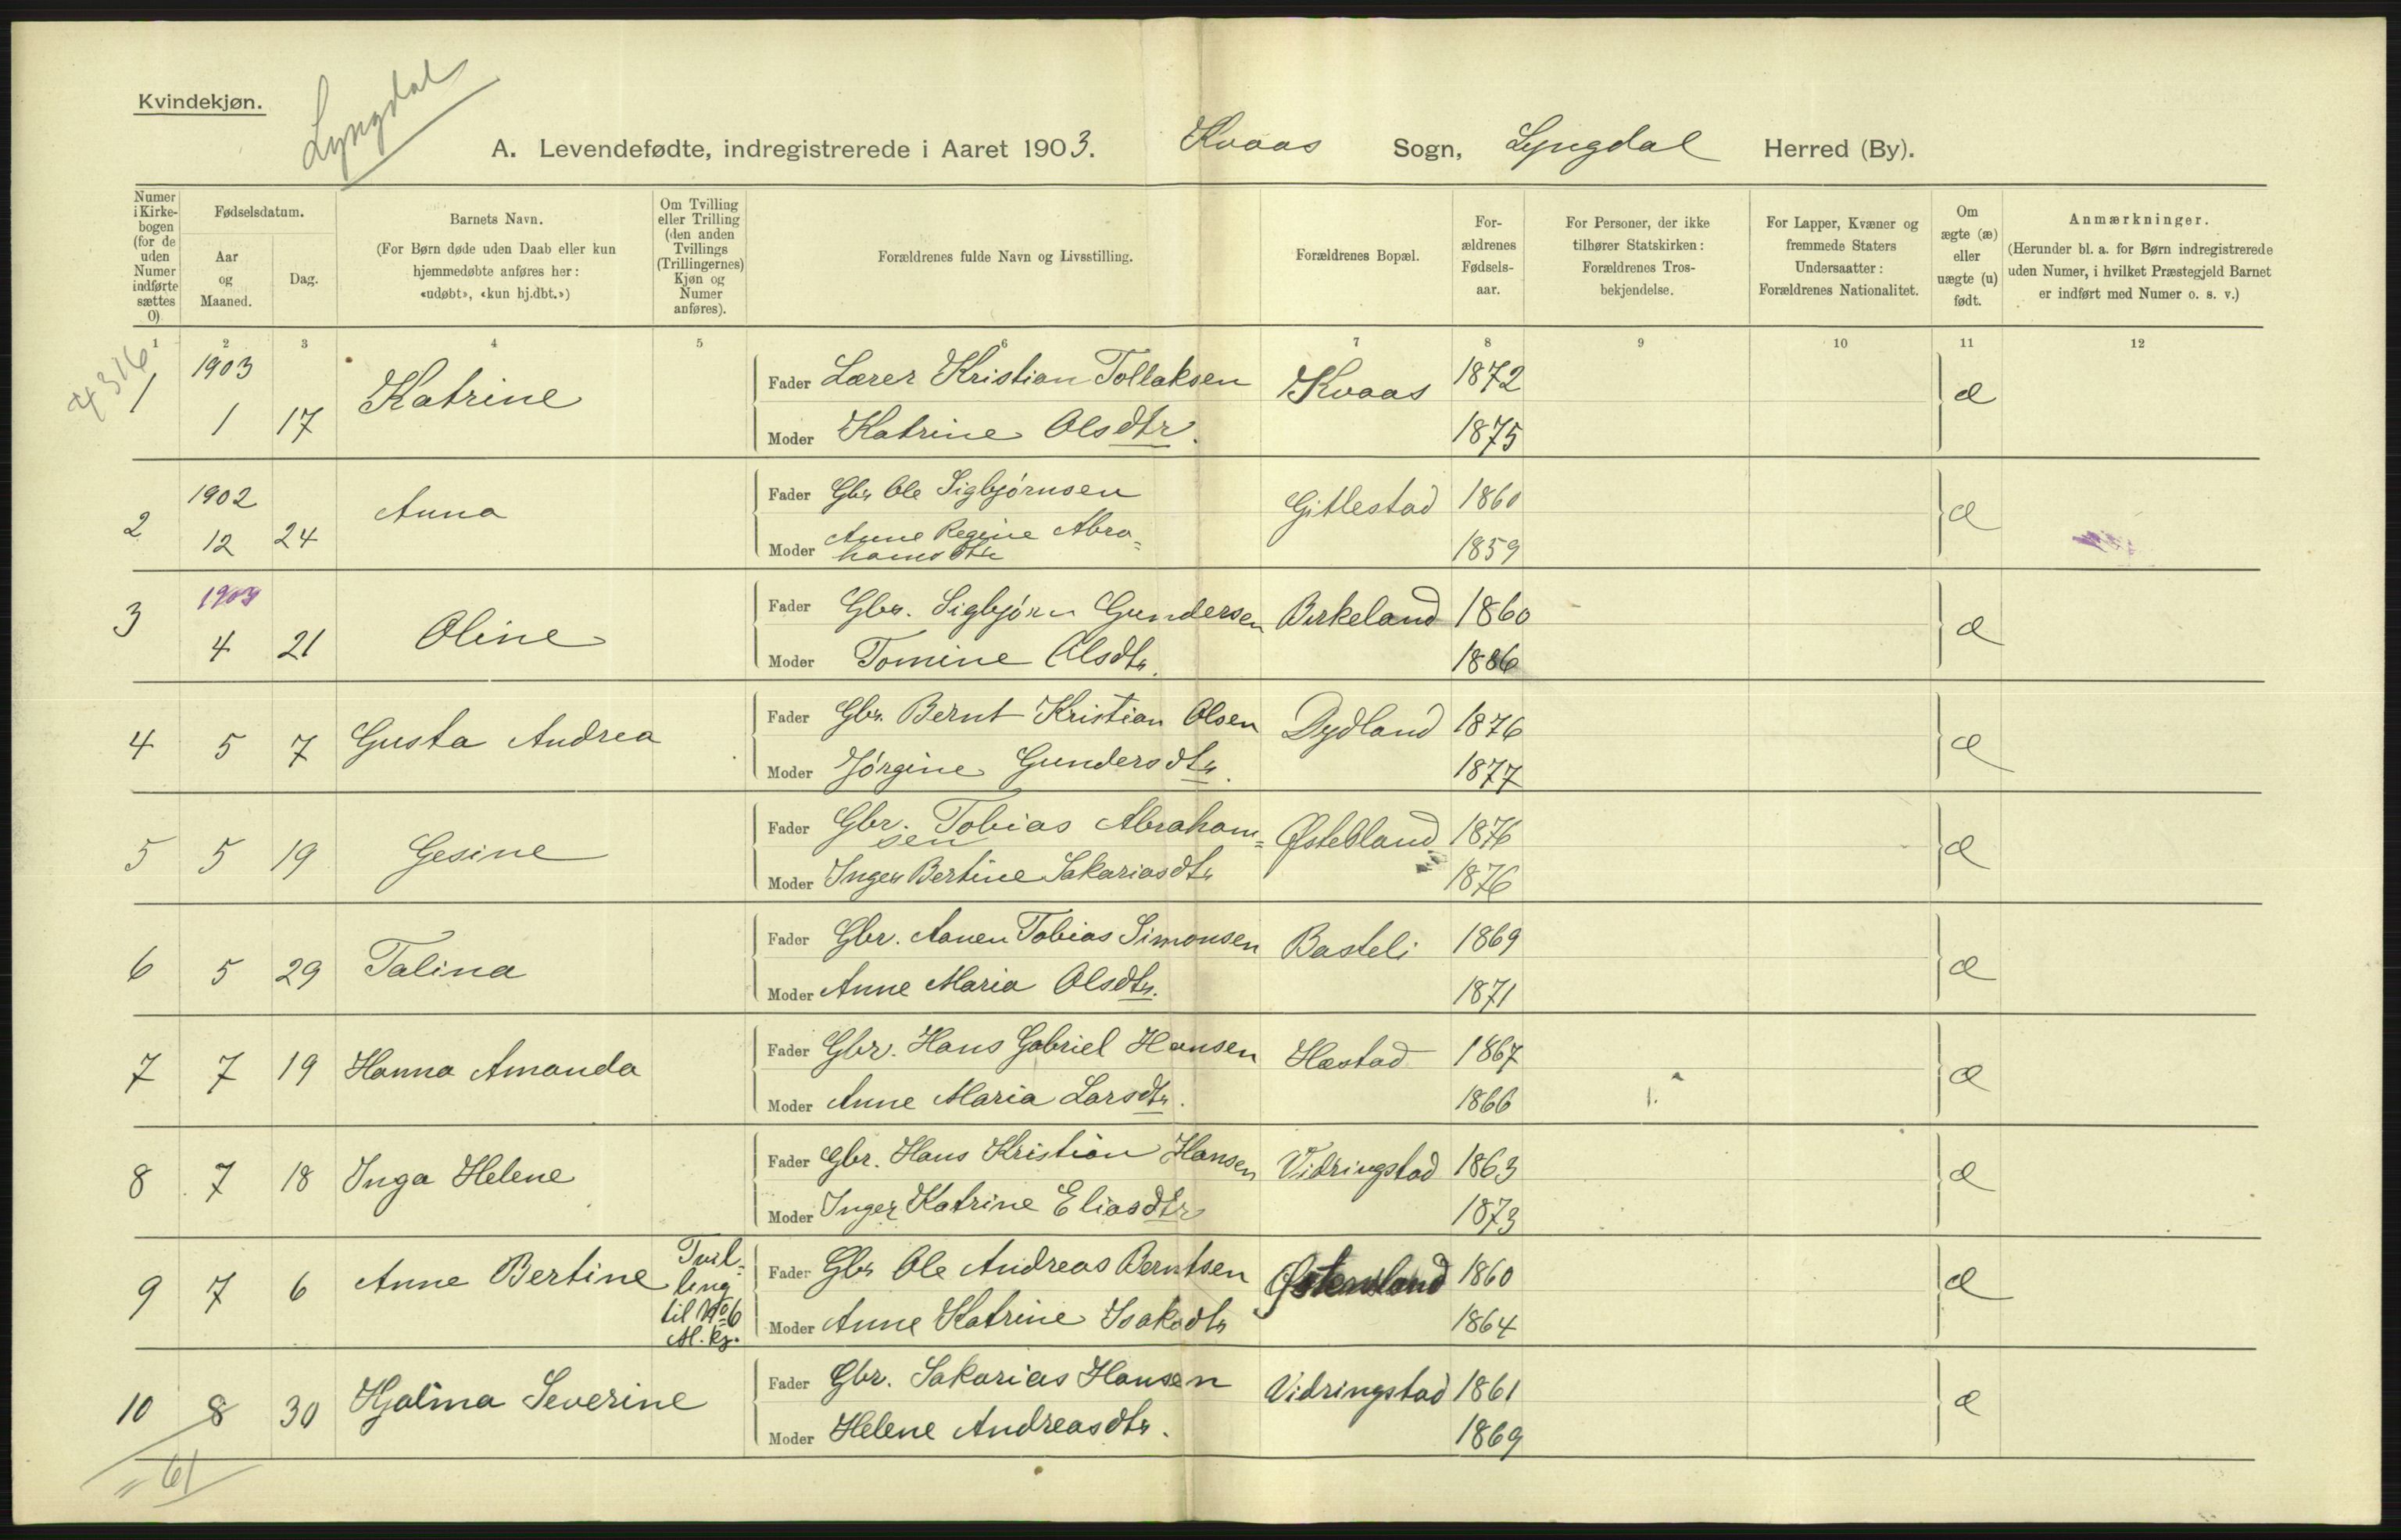 Kvindekjøn.
Lyngdal
A. Levendefødte, indregistrerede i Aaret 1903. Kvaas Sogn, Lyngdal Herred (By).
Numer i Kirke-bogen (for de uden Numer indførte sættes 0)
Fødselsdatum.
Aar og Maaned.
Dag.
Barnets Navn.
(For Børn døde uden Daab eller kun hjemmedøbte anføres her: «udøbt», «kun hj.dbt.»)
Om Tvilling eller Trilling (den anden Tvillings (Trillingernes) Kjøn og Numer anføres).
Forældrenes fulde Navn og Livsstilling.
Forældrenes Bopæl.
For-ældrenes Fødsels-aar.
For Personer, der ikke tilhører Statskirken: Forældrenes Tros-bekjendelse.
For Lapper, Kvæner og fremmede Staters Undersaatter: Forældrenes Nationalitet.
Om ægte (æ) eller uægte (u) født.
Anmærkninger.
(Herunder bl. a. for Børn indregistrerede uden Numer, i hvilket Præstegjeld Barnet er indført med Numer o. s. v.)
1 2 3 4 5 6 7 8 9 10 11 12
4316
1 1903 1 17 Katrine Fader Lærer Kristian Tollaksen Kvaas 1872 æ
Moder Katrine Olsdtr. 1875
2 1902 12 24 Anna Fader Gbr Ole Sigbjørnsen Gitlestad 1860 æ
Moder Anne Regine Abra=
hamsdtr 1859
3 1903 4 21 Oline Fader Gbr. Sigbjørn Gundersen Birkeland 1860 æ
Moder Tomine Olsdtr. 1886
4 5 7 Gusta Andrea Fader Gbr. Bernt Kristian Olsen Dydland 1876 æ
Moder Jørgine Gundersdtr. 1877
5 5 19 Gesine Fader Gbr. Tobias Abraham=
sen 1876 æ
Moder Inger Bertine Sakariasdtr 1876
6 5 29 Talina Fader Gbr. Aanen Tobias Simonsen Basteli 1869 æ
Moder Anne Maria Olsdtr. 1871
7 7 19 Hanna Amanda Fader Gbr. Hans Gabriel Hansen Hæstad 1867 æ
Moder Anne Maria Larsdtr. 1866
8 7 18 Inga Helene Fader Gbr. Hans Kristian Hansen Vidringstad 1863 æ
Moder Inger Katrine Eliasdtr 1873
9 7 6 Anne Bertine Tvil=
ling
til No 6
M. kj.
Fader Gbr Ole Andreas Berntsen 1860 æ
Moder Anne Katrine Isaksdtr 1864
10 8 30 Hjalma Severine Fader Gbr. Sakarias Hansen Vidringstad 1861 æ
Moder Helene Andreasdtr. 1869
" 61